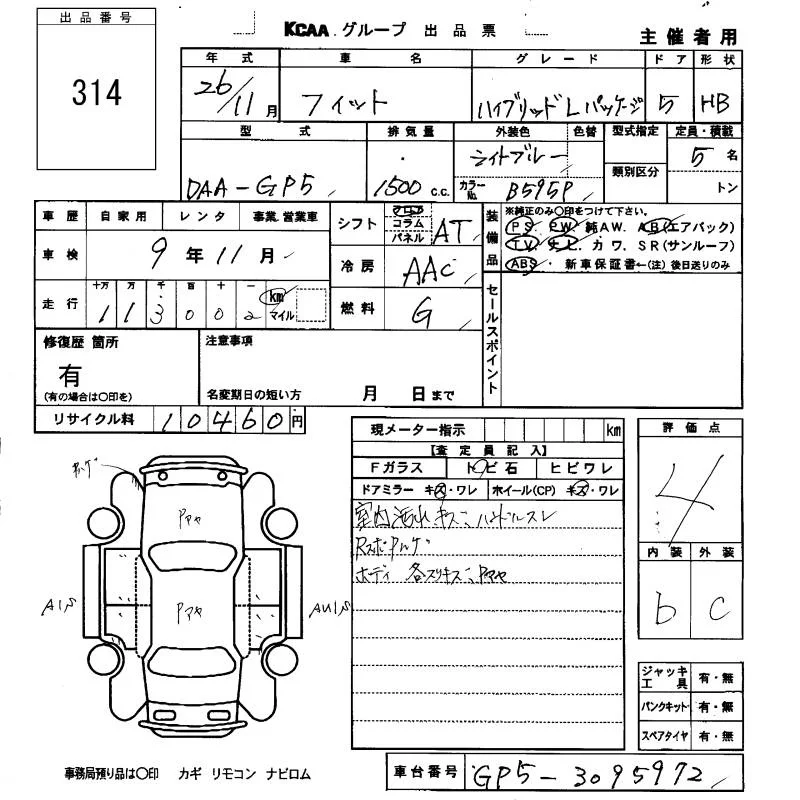 出品番号
314
KCAA グループ 出品票
主催者用
年式 車名 グレード ドア 形状
26/11月 フィット ハイブリッドLパッケージ 5 HB
型式 排気量 外装色 色替 型式指定 定員・積載
DAA-GP5 1500 c.c. ライトブルー 類別区分 5名
カラーNo. B595P トン
車歴 自家用 レンタ 事業、営業車
シフト フロア コラム パネル AT
車検 9年11月
冷房 AAC
走行 十万 万 千 百 十 一
113002 km マイル
燃料 G
装備品 ※純正のみ○印をつけて下さい。
PS PW 純AW. AB(エアバック)
TV ナビ カワ. SR(サンルーフ)
ABS 新車保証書←(注)後日送りのみ
セールスポイント
修復歴箇所
有
(有の場合は○印を)
注意事項
名変期日の短い方 月 日まで
リサイクル料 10460円
現メーター指示 km
【査定員記入】
Fガラス トビ石 ヒビワレ
ドアミラー キズ・ワレ ホイール(CP) キズ・ワレ
室内汚れキズ、ハンドルスレ
RスポPハゲ
ボディ 各スリキズ、Pマヤ
評価点
4
内装 外装
b c
Pハゲ
Pマヤ
A1S Pマヤ AU1S
ジャッキ工具 有・無
パンクキット 有・無
スペアタイヤ 有・無
事務局預り品は○印 カギ リモコン ナビロム
車台番号 GP5-3095972